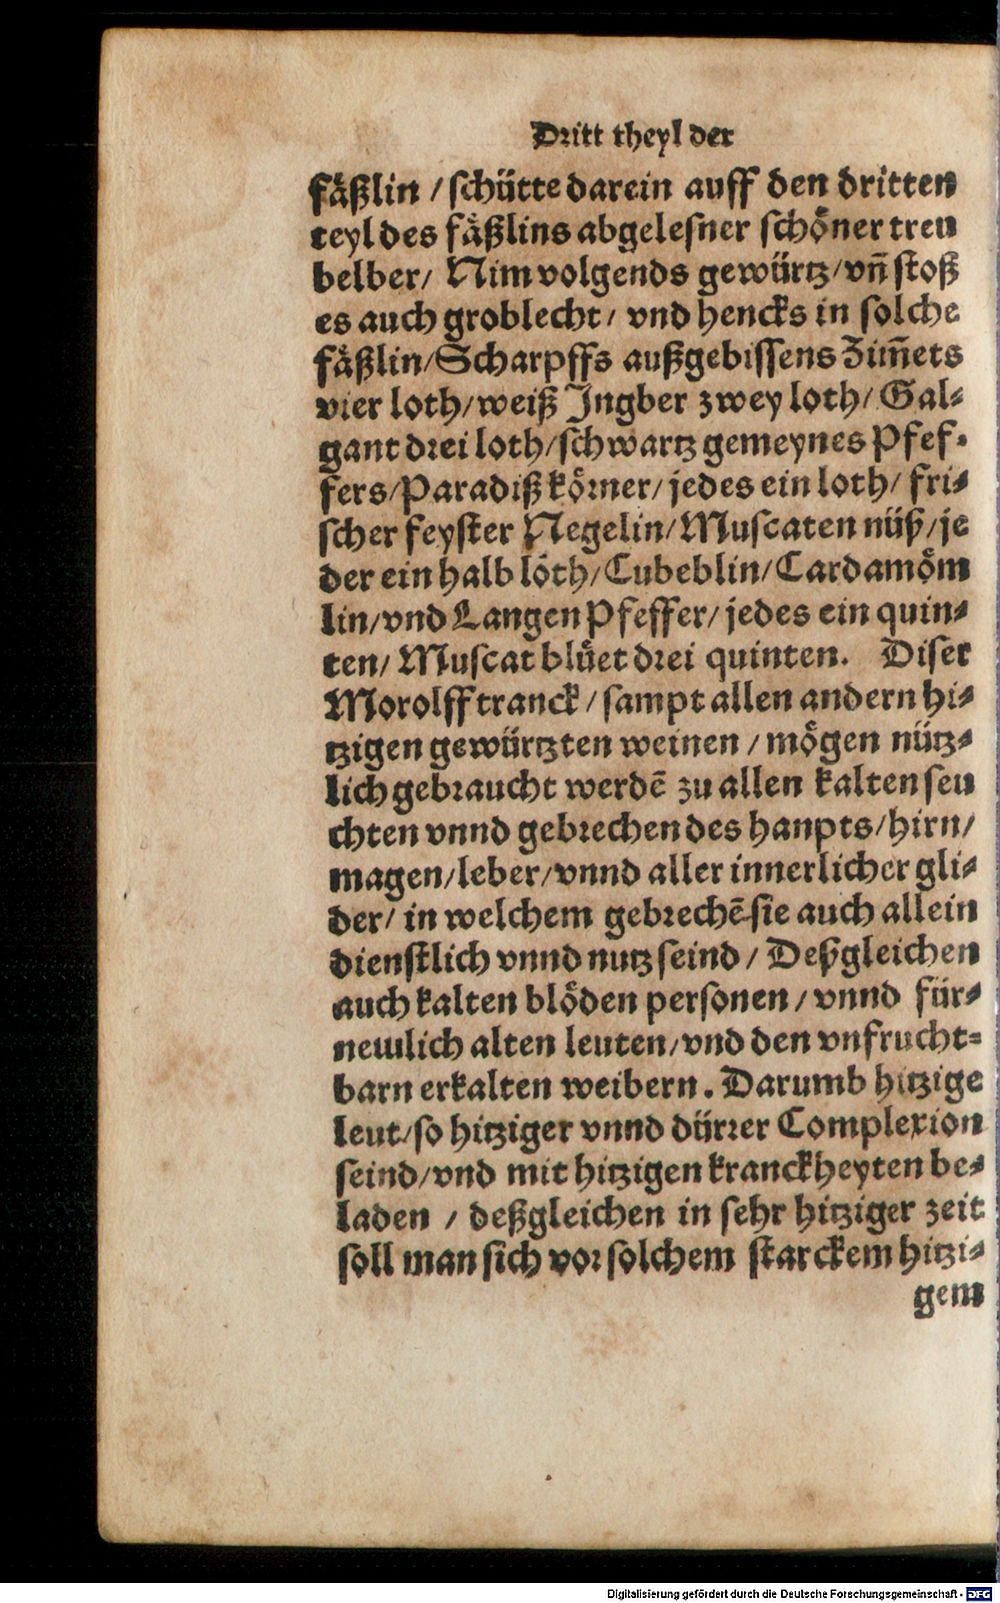 Dritt theyl der
fäßlin / schütte darein auff den dritten
teyl des fäßlins abgelesner schöner treu
belber / Nim volgends gewürtz / vñ stoß
es auch groblecht / vnd hencks in solche
fäßlin / Scharpffs außgebissens Zim̃ets
vier loth / weiß Ingber zwey loth / Gal⸗
gant drei loth / schwartz gemeynes Pfef⸗
fers / Paradiß körner / jedes ein loth / fri⸗
scher feyster Negelin / Muscaten nüß / je
der ein halb loth / Cubeblin / Cardamöm
lin / vnd Langen Pfeffer / jedes ein quin⸗
ten / Muscat blüet drei quinten. Diser
Morolff tranck / sampt allen andern hi⸗
tzigen gewürtzten weinen / mögen nütz⸗
lich gebraucht werdẽ zu allen kalten seu
chten vnnd gebrechen des haupts / hirn /
magen / leber / vnnd aller innerlicher gli⸗
der / in welchem gebrechẽ sie auch allein
dienstlich vnnd nutz seind / Deßgleichen
auch kalten blöden personen / vnnd für⸗
nemlich alten leuten / vnd den vnfrucht⸗
barn erkalten weibern. Darumb hitzige
leut / so hitziger vnnd dürrer Complexion
seind / vnd mit hitzigen kranckheyten be⸗
laden / deßgleichen in sehr hitziger zeit
soll man sich vor solchem starckem hitzi⸗
gem
Digitalisierung gefördert durch die Deutsche Forschungsgemeinschaft - DFG